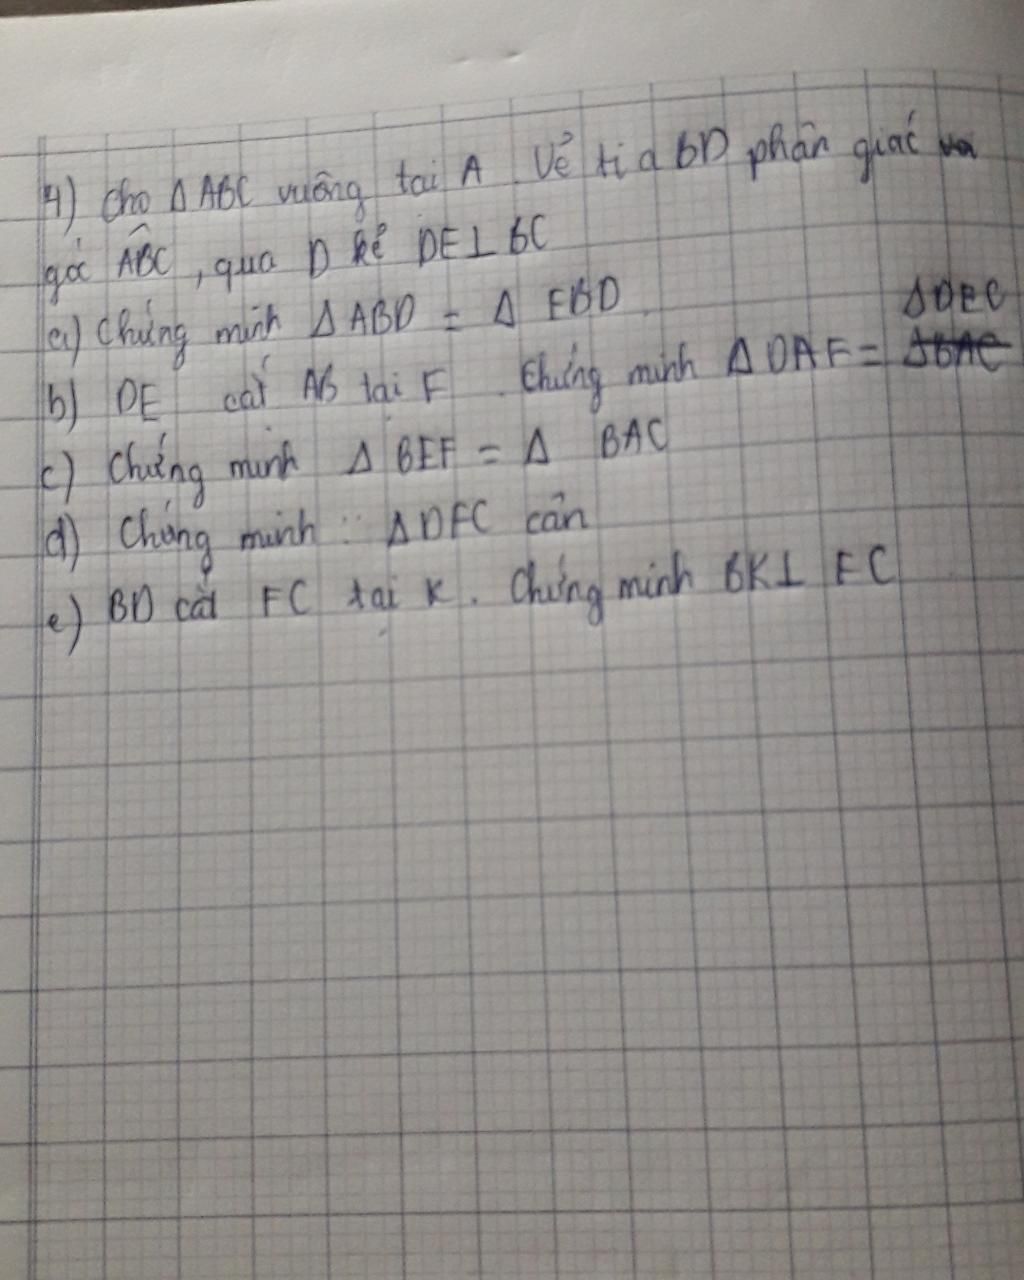 4) Cho Δ ABC vuông tại A. Vẽ tia BD phân giác
góc ABC, qua D kẻ DE⊥BC
a) Chứng minh Δ ABD = Δ EBD
ΔDEC
b) DE cắt AB tại F. Chứng minh Δ DAF = ΔBAC
c) Chứng minh Δ BEF = Δ BAC
d) Chứng minh : ΔDFC cân
e) BD cắt FC tại K. Chứng minh BK⊥ FC